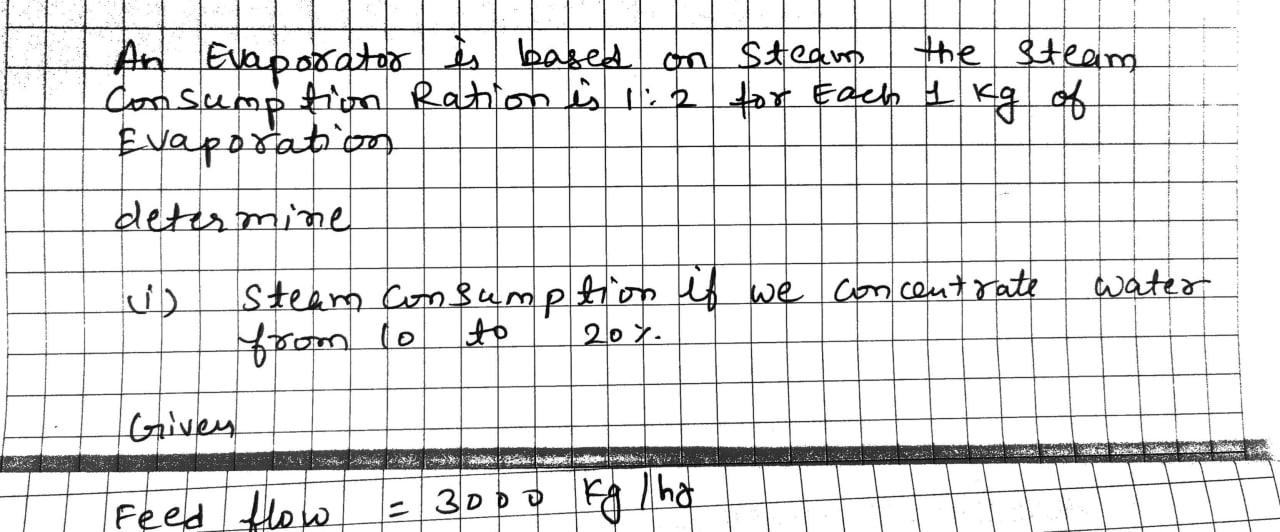 An Evaporator is based on Steam the Steam
Consumption Ration is 1:2 for Each 1 Kg of
Evaporation
determine
(i) Steam Consumption if we concentrate water
from 10 to 20%.
Given
Feed flow = 3000 Kg/hr